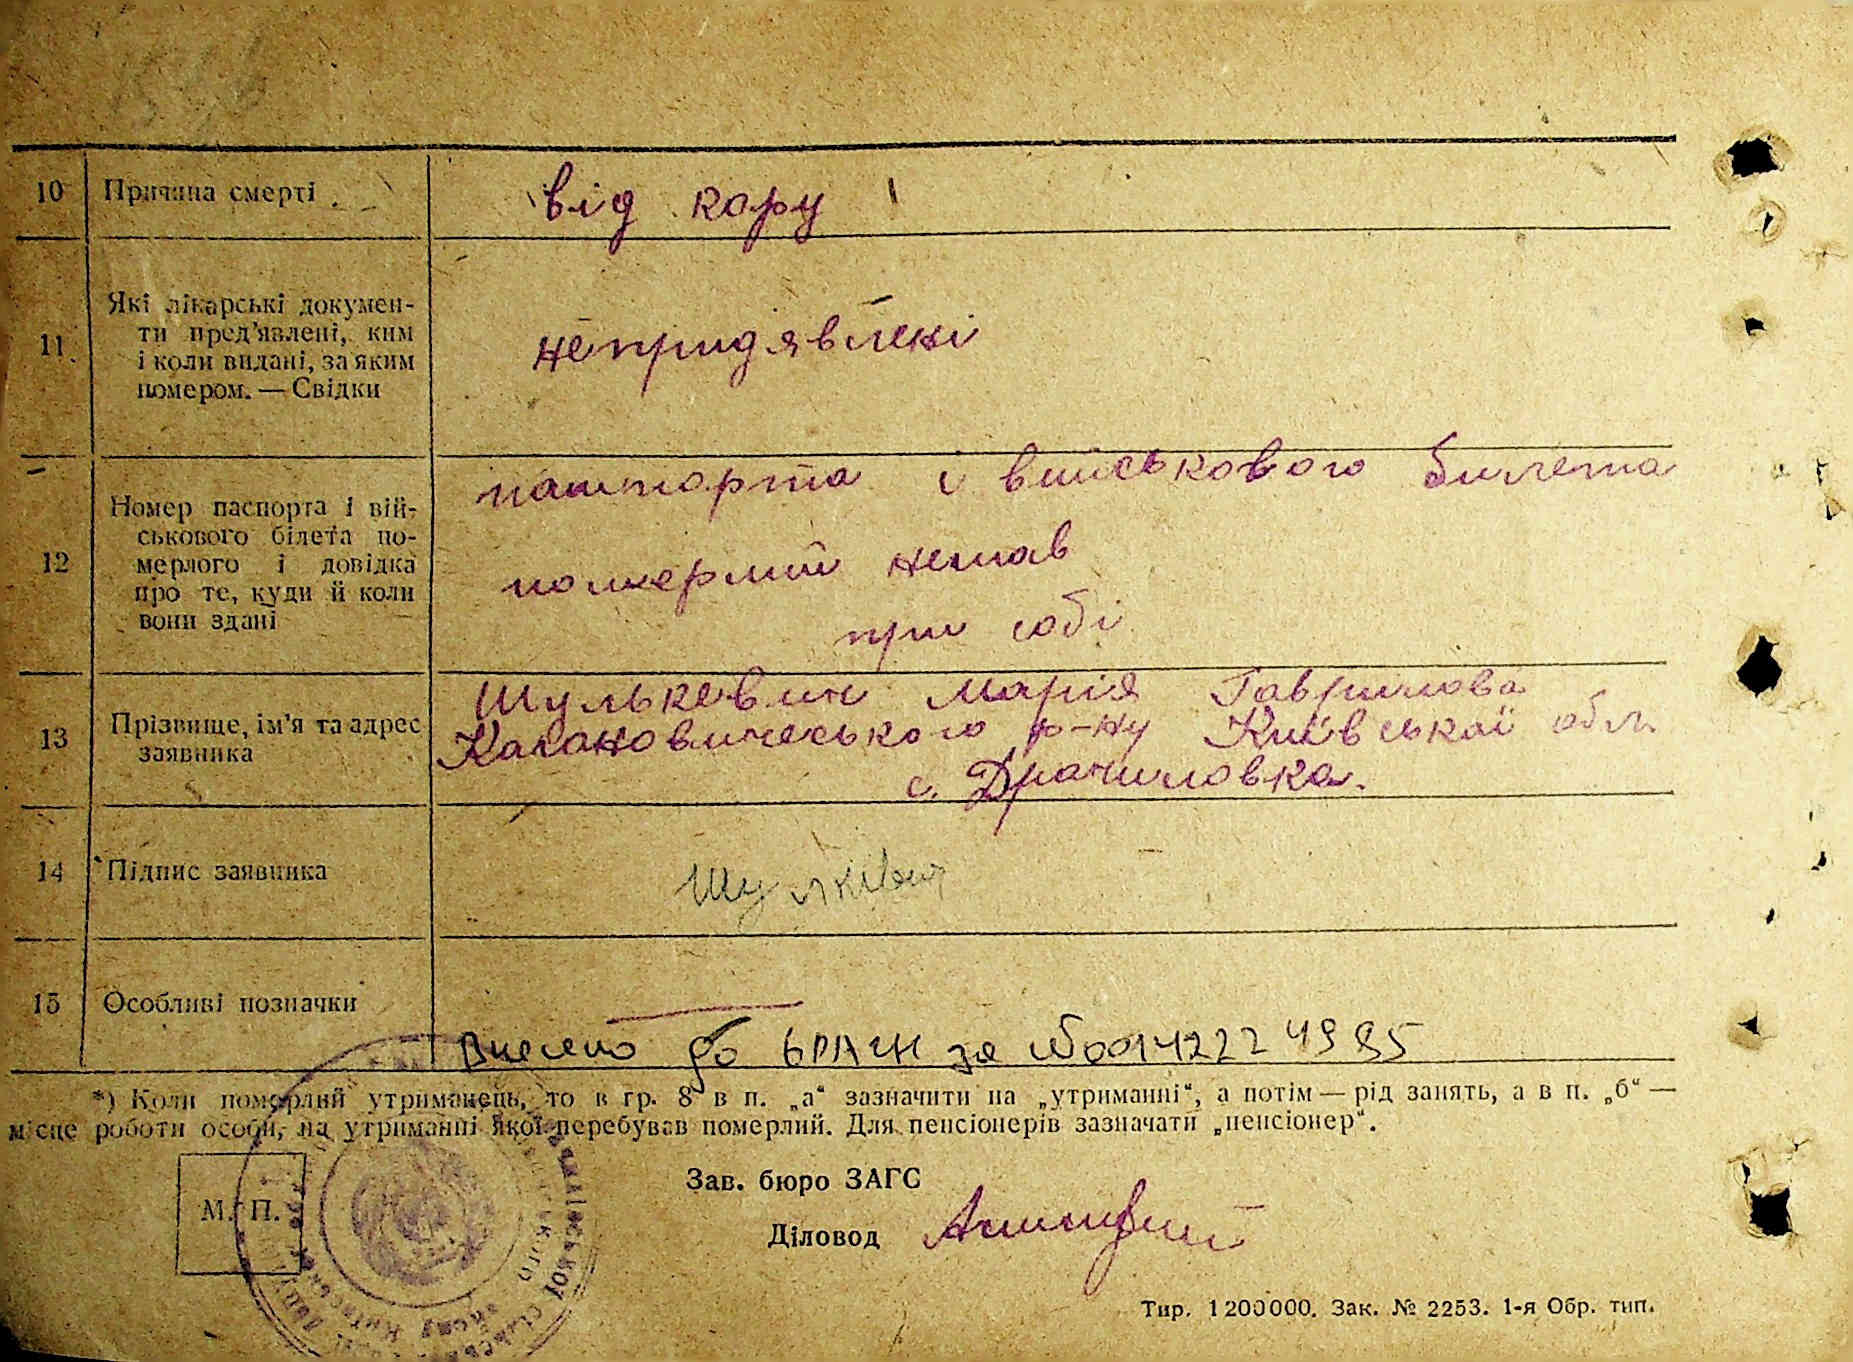 10 Причина смерті від кору
11. Які лікарські докумен-
ти пред'явлені, ким
і коли видані, за яким
номером. — Свідки
непридявлені
12 Номер паспорта і вій-
ськового білета по-
мерлого і довідка
про те, куди й коли
вони здані
пашпорта і військового билета
померлий немав
при собі
13 Прізвище, ім'я та адрес
заявника
Шулькевич Марія Гаврилова
Кагановичеського р-ну Київської обл.
с. Драчиловка.
14 Підпис заявника
15 Особливі позначки
Внесено до за №00142224995
*) Коли померлий утриманець, то в гр. 8 в п. „а“ зазначити на „утриманні“, а потім — рід занять, а в п. „б“ —
місце роботи особи, на утриманні якої перебував померлий. Для пенсіонерів зазначати „пенсіонер“.
М. П.
Зав. бюро ЗАГС
Діловод
Тир. 1200000. Зак. № 2253. 1-я Обр. тип.